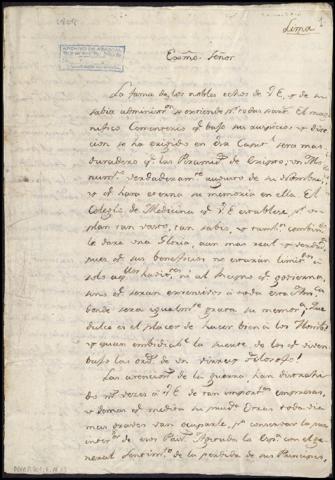 1808
Lima
1
Exmo. Señor
La fama de los nobles echos de V.E. y de su
sabia administn. se extiende pr. todas partes. El mag-
nifico Cementerio qe. bajo sus auspicios y direc-
cion se ha erigido en esa Capitl. sera mas
duradero qe. las Piramids. de Exipto; un Mo-
numto. verdaderamte. augusto de su Nombre,
y qe. hara eterna su memoria en ella. El
Colegio de Medicina qe. V.E. establece, pr. un
plan tan vasto, tan sabio, y tambn. combindo.
le dara una Gloria, aun mas real y verdadera,
pues qe. sus beneficios no estaran limitados. a
solo aqllos. ni al Reyno qe. govierna,
sino qe. seran extensivos a toda esta Amca.
donde sera igualmte. grata su memoria. Que
dulce es el placer de hacer bien a los Hombs.
y quan embidiable la suerte de los qe. viven
bajo las ords. de un Virrey Filosofo!
Las atencions. de la guerra, han distrahido
ms. veces a V.E. de tan importtes. empresas,
y demas qe. medita su
mas graves van ocuparle, pr. conservar la
de esos Paises. Agoviada la Espa. con el ge-
neral Sentimto. de la perdida de sus Principes,